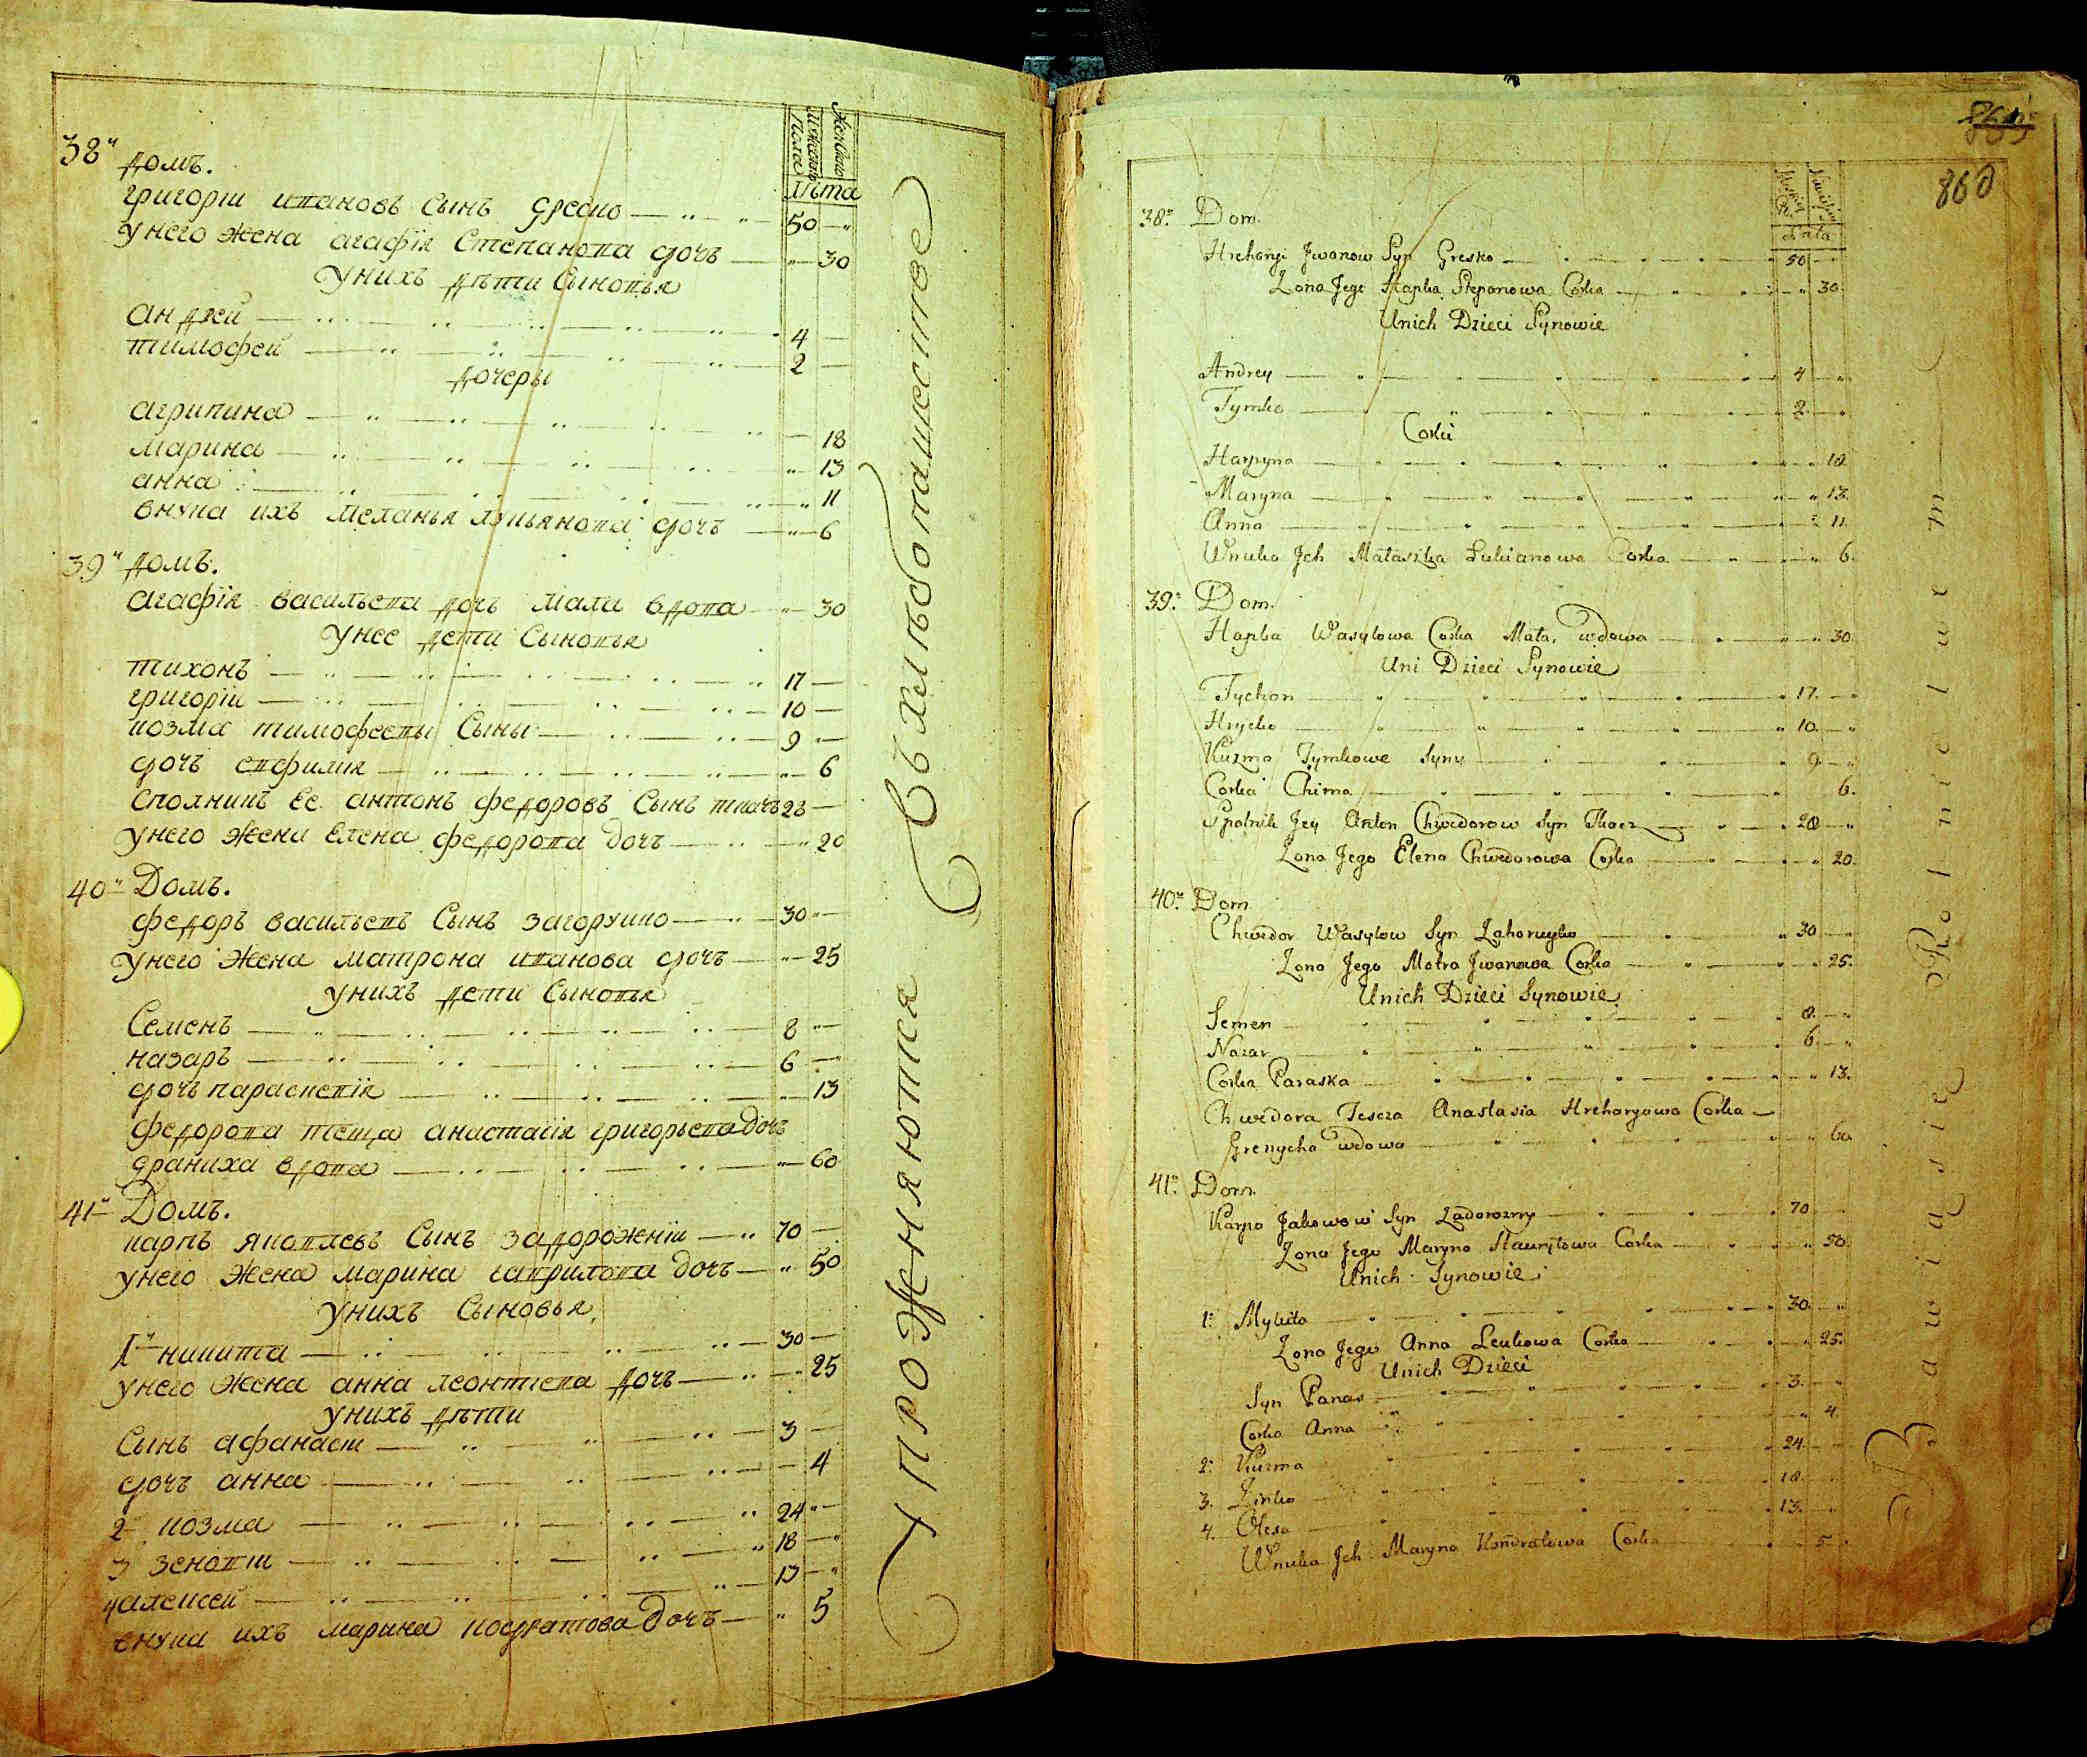 Мужеска Пола
Женска
Лѣта
38й домъ.
григорій ивановъ сынъ греско 50
унего жена агафія степанова дочь 30
унихъ дѣти сыновья
андрей 4
тимофей 2
дочеры
агрипина 18
марина 13
анна 11
внука ихъ меланья лукьянова дочь 6
39й домъ.
агафія васильева дочь мала вдова 30
унее дети сыновья
тихонъ 17
григорій 10
козма тимофеевы сыны 9
дочь евфимія 6
сполникъ ее антонъ федоровъ сынъ ткачъ 28
унего жена елена федорова дочь 20
40й Домъ.
федоръ васильевъ сынъ загоруико 30
унего жена матрона иванова дочь 25
унихъ дети сыновья
семенъ 8
назаръ 6
дочь параскевія 13
федорова теща анастасія григорьева дочь
граниха вдова 60
41й Домъ.
карпъ яковлевъ сынъ задорожній 70
унего жена марина гаврилова дочь 50
унихъ сыновья,
1й никита 30
унего жена анна леонтиева дочь 25
унихъ дѣти
сынъ афанасій 3
дочь анна 4
2й козма 24
3 зеновій 18
4 алексей 13
внука ихъ марина кондратова дочь 5
Упроженяются Вхлѣбопашестве
860
38º. Dom.
Hrehoryi Jwanow Syn Gresko 50
Zona Jego Hapka Stepanowa Corka 30.
Unich Dzieci Synowie
Andrey 4
Tymko 2
Corki
Harpyna 18
Maryna 13.
Anna 11.
Wnuka Jch Małaszka Łukianowa Corka 6.
39º. Dom.
Hapka Wasylowa Corka Mała, wdowa 30.
Uni Dzieci Synowie
Tychon 17.
Hryćko 10.
Kuzma Tymkowe Syny 9
Corka Chima 6.
Spolnik Jey Anton Chwedorow Syn Tkacz 28
Zona Jego Elena Chwedorowa Corka 20.
40º. Dom
Chwedor Wasylow Syn Zahoruyko 30
Zona Jego Motra Jwanowa Corka 25.
Unich Dzieci Synowie
Semen 8.
Nazar 6.
Corka Paraska 13.
Chwedora Tescza Anastasia Hrehorgowa Corka
Grenycha wdowa 60
41º. Dom.
Karpo Jakowow Syn Zadorozny 70
Zona Jego Maryna Hawryłowa Corka 50.
Unich Synowie
1º. Mykita 30.
Zona Jego Anna Leukowa Corka 25.
Unich Dzieci
Syn Panas 3.
Corka Anna 4.
2º. Kuzma 24.
3. Zinko 18.
4. Olexa 13.
Wnuka Jch Maryna Kondratowa Corka 5
Bawią się Rolnictwem